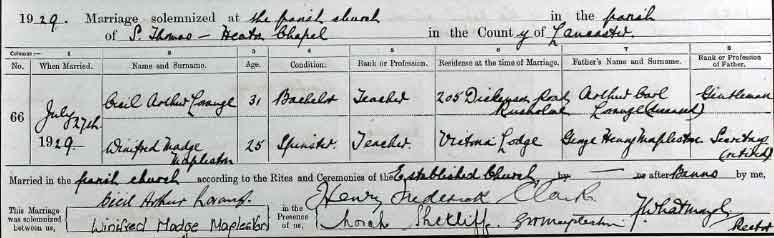 1929. Marriage solemnized at the parish church in the parish
of S. Thomas - Heaton Chapel in the County of Lancaster.
Columns:— 1 2 3 4 5 6 7 8
No. When Married. Name and Surname. Age. Condition. Rank or Profession. Residence at the time of Marriage. Father's Name and Surname. Rank or Profession of Father.
66 July 27th 1929. Cecil Arthur 31 Bachelor Teacher 205 Dickenson Road Rusholme Arthur Carl (deceased) Gentleman
Winifred Madge Mapleston 25 Spinster Teacher Victoria Lodge George Henry Mapleston Secretary (retired)
Married in the parish church according to the Rites and Ceremonies of the Established Church, by — or after Banns by me,
This Marriage was solemnized between us, Cecil Arthur in the Presence of us, Henry Frederick Clark
Winifred Madge Mapleston Norah Shetliff. G H Mapleston Rector